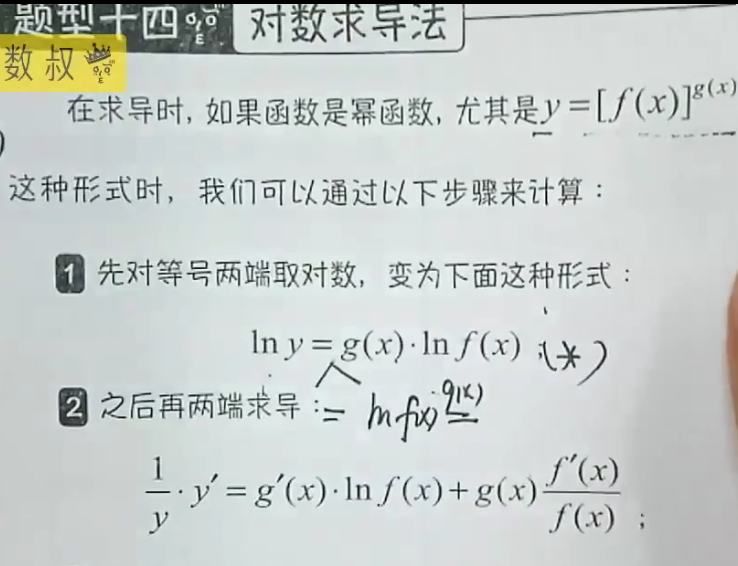 题型十四 对数求导法
数叔
在求导时, 如果函数是幂函数, 尤其是y=[f(x)]^{g(x)}
这种形式时, 我们可以通过以下步骤来计算:
1 先对等号两端取对数, 变为下面这种形式:
ln y = g(x)·ln f(x) ; (*)
2 之后再两端求导:
= ln f(x)^{g(x)}
1/y · y′ = g′(x)·ln f(x) + g(x) f′(x)/f(x) ;